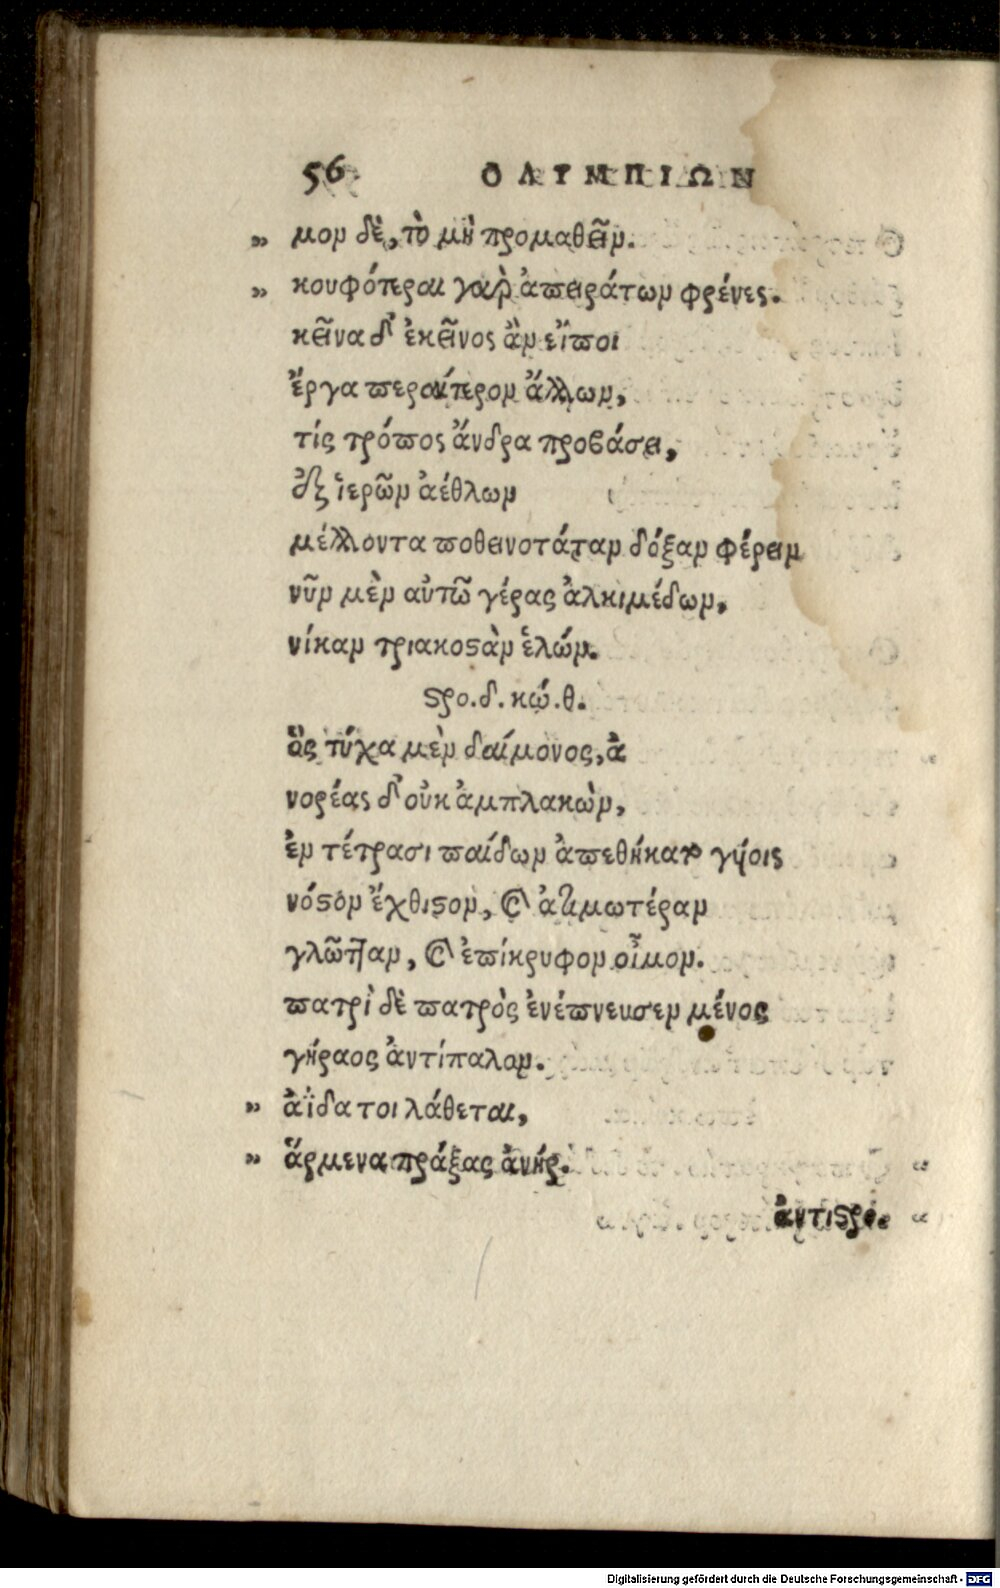 56 ΟΛΥΜΠΙΩΝ
„ μον δὲ, τὸ μὴ προμαθεῖν.
„ κουφότεραι γὰρ ἀπειράτων φρένες.
κεῖνα δ' ἐκεῖνος ἂν εἴποι
ἔργα περαίτερον ἄλλων,
τίς τρόπος ἄνδρα προβάσει,
ἐξ ἱερῶν ἀέθλων
μέλλοντα ποθεινοτάταν δόξαν φέρειν
νῦν μὲν αὐτῶ γέρας ἀλκιμέδων,
νίκαν τριακοστὰν ἑλών.
στρο. δ. κώ. θ.
ὃς τύχα μὲν δαίμονος, ἀ
νορέας δ' οὐκ ἀμπλακὼν,
ἐν τέτρασι παίδων ἀπεθήκατο γυίοις
νόστον ἔχθιστον, καὶ ἀτιμωτέραν
γλῶτταν, καὶ ἐπίκρυφον οἶμον.
πατρὶ δὲ πατρὸς ἐνέπνευσεν μένος
γήραος ἀντίπαλον.
„ ἀΐδα τοι λάθεται,
„ ἅρμενα πράξας ἀνήρ.
ἀντιστρο.
Digitalisierung gefördert durch die Deutsche Forschungsgemeinschaft - DFG